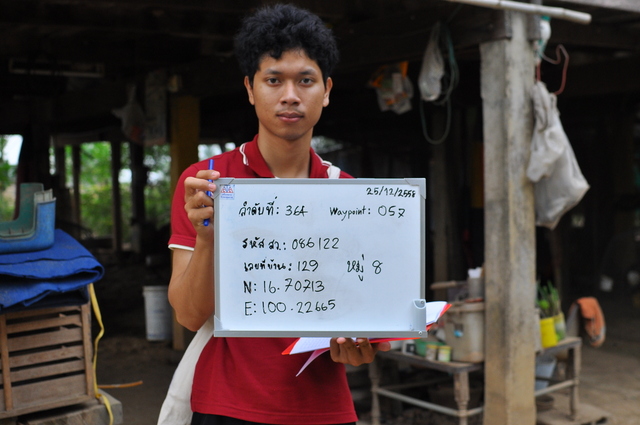 25/12/2558
ลำดับที่: 364 Waypoint: 057
รหัส สว.: 086122
เลขที่บ้าน: 129 หมู่ 8
N: 16.70713
E: 100.22665